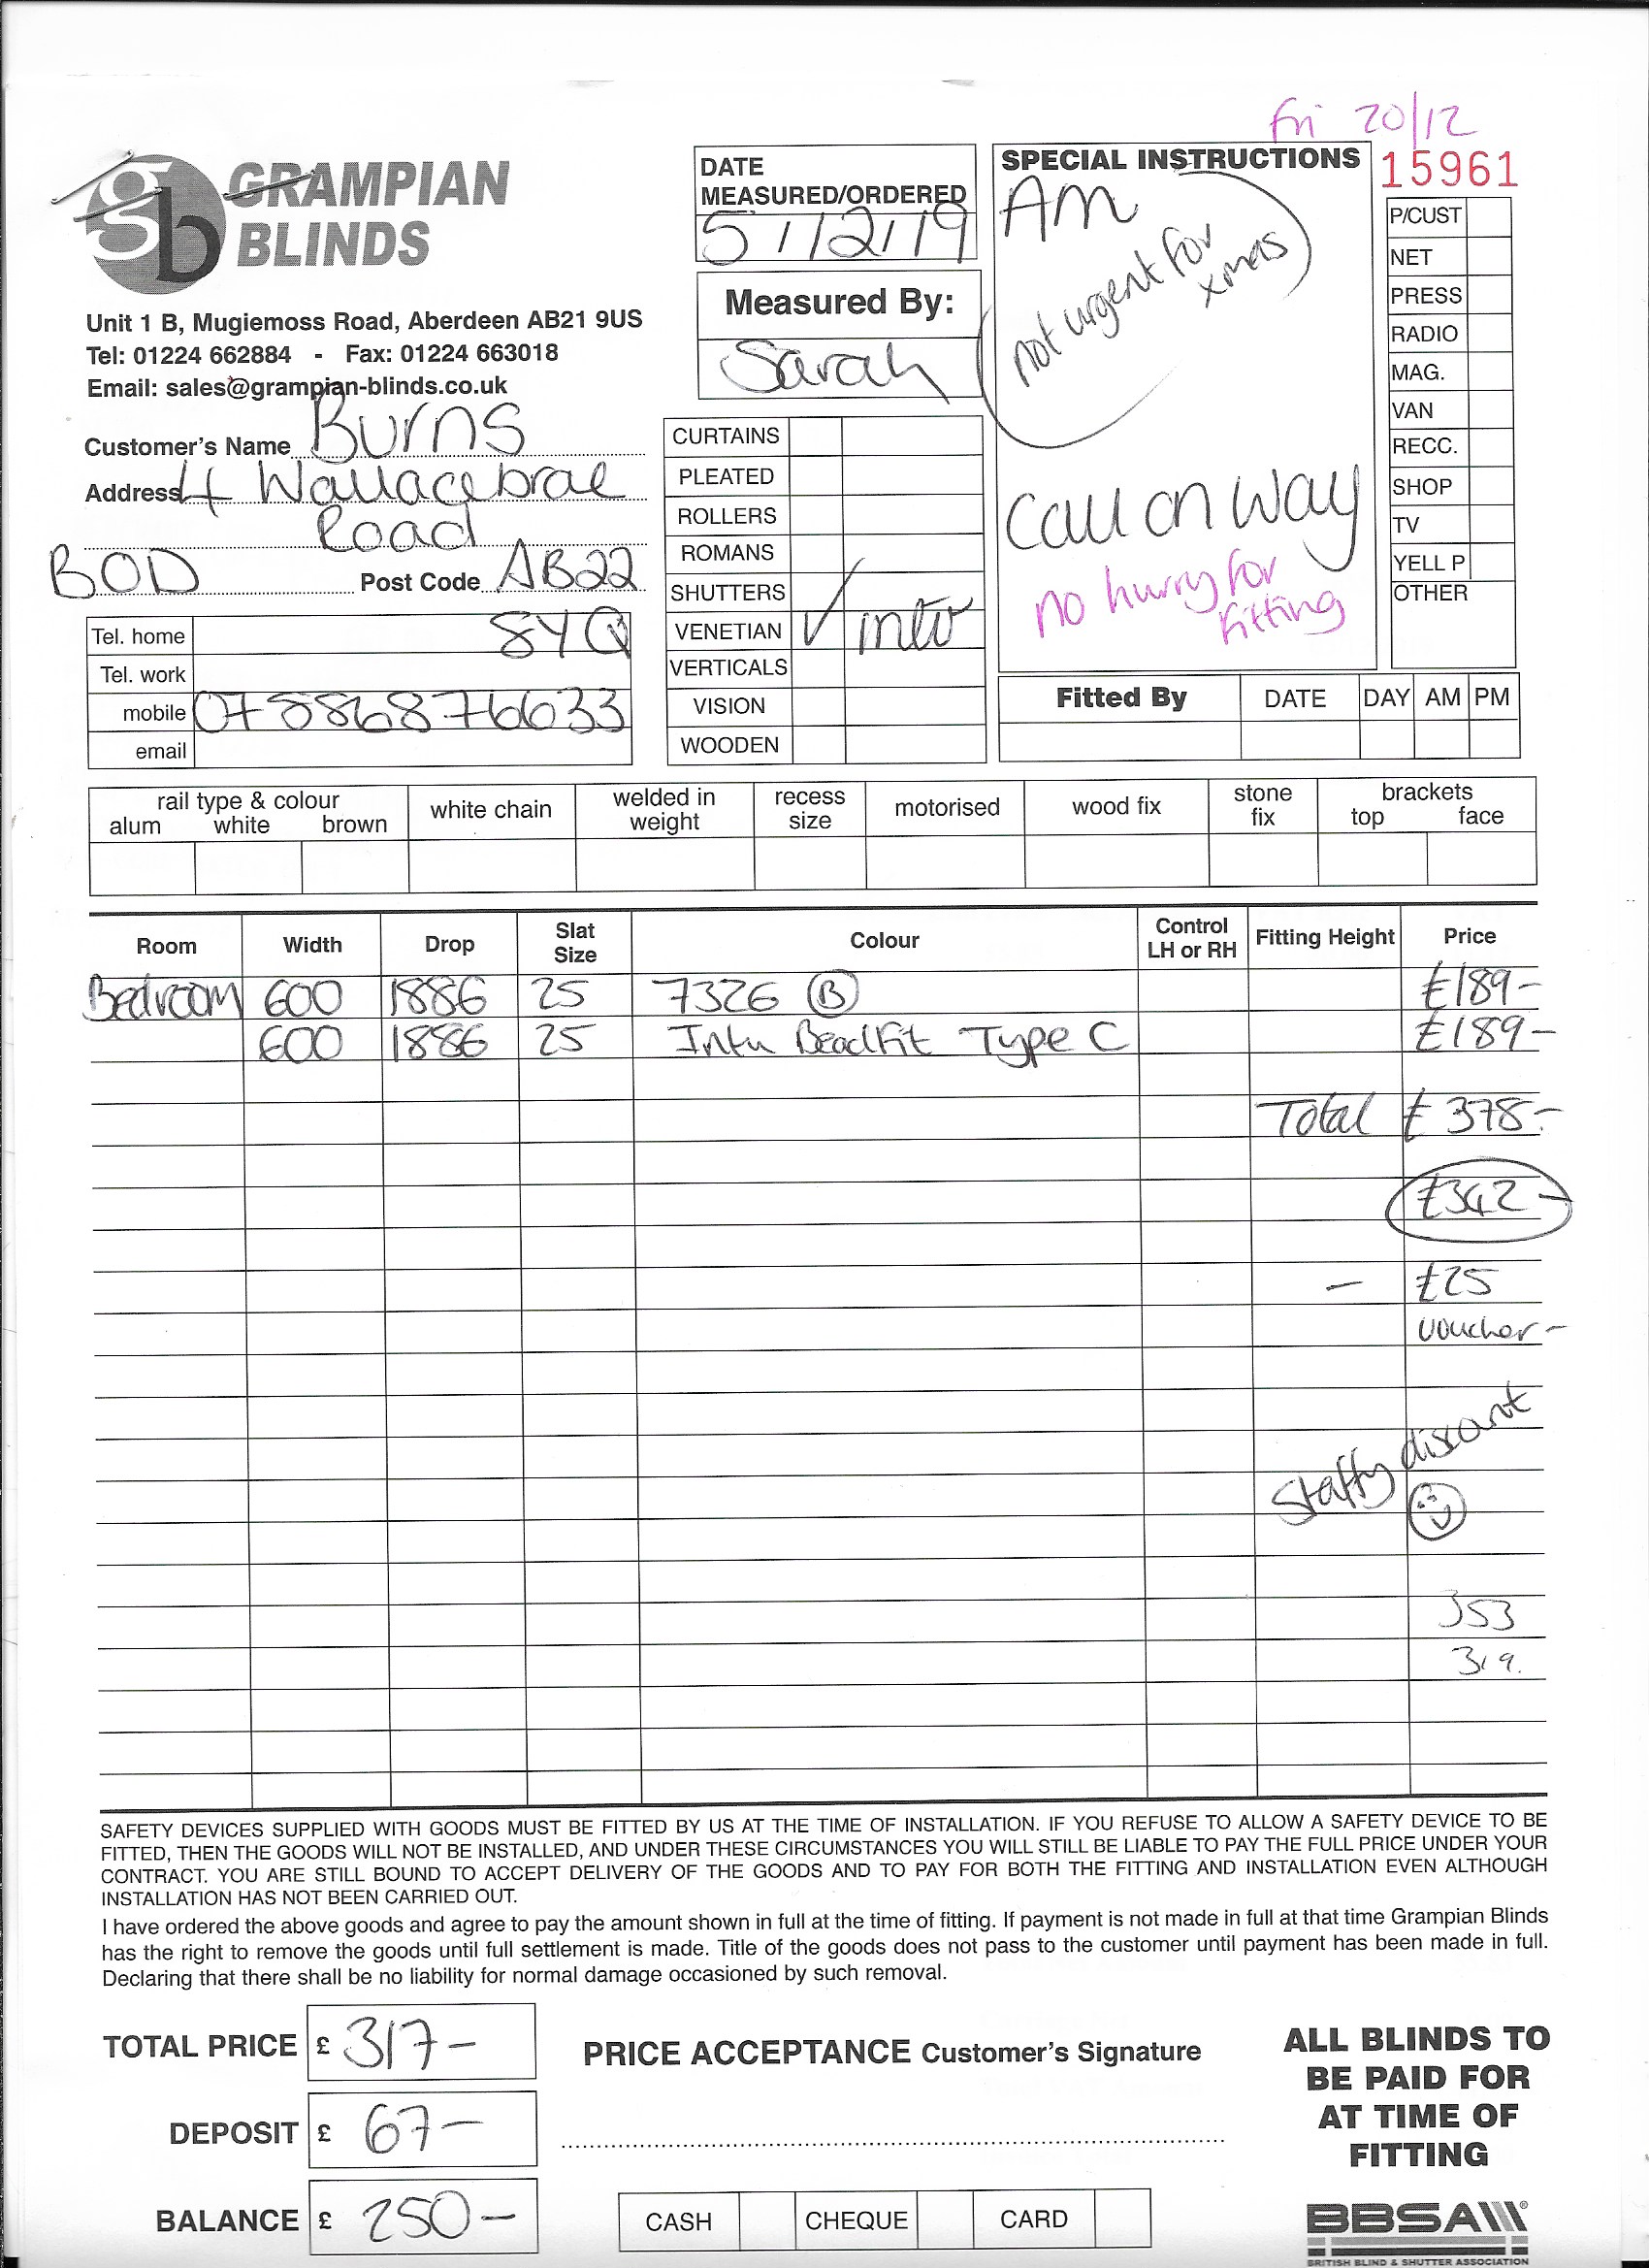 Fri 20/12
15961
GRAMPIAN
BLINDS
gb
Unit 1 B, Mugiemoss Road, Aberdeen AB21 9US
Tel: 01224 662884 - Fax: 01224 663018
Email: sales@grampian-blinds.co.uk
Customer's Name Burns
Address 4 Wallacebrae
Road
BOD Post Code AB22
8YQ
Tel. home
Tel. work
mobile 07886876633
email
DATE
MEASURED/ORDERED
5/12/19
Measured By:
Sarah
CURTAINS
PLEATED
ROLLERS
ROMANS
SHUTTERS
VENETIAN ✓ intu
VERTICALS
VISION
WOODEN
SPECIAL INSTRUCTIONS
AM
not urgent for
xmas
Call on way
no hurry for
fitting
P/CUST
NET
PRESS
RADIO
MAG.
VAN
RECC.
SHOP
TV
YELL P
OTHER
Fitted By DATE DAY AM PM
rail type & colour
alum white brown
white chain
welded in
weight
recess
size
motorised
wood fix
stone
fix
brackets
top face
Room Width Drop Slat Size Colour Control LH or RH Fitting Height Price
Bedroom 600 1886 25 7326 B £189-
600 1886 25 Intu Beadfit Type C £189-
Total £378-
£342-
- £25
voucher-
Staffy discount
353
319.
SAFETY DEVICES SUPPLIED WITH GOODS MUST BE FITTED BY US AT THE TIME OF INSTALLATION. IF YOU REFUSE TO ALLOW A SAFETY DEVICE TO BE
FITTED, THEN THE GOODS WILL NOT BE INSTALLED, AND UNDER THESE CIRCUMSTANCES YOU WILL STILL BE LIABLE TO PAY THE FULL PRICE UNDER YOUR
CONTRACT. YOU ARE STILL BOUND TO ACCEPT DELIVERY OF THE GOODS AND TO PAY FOR BOTH THE FITTING AND INSTALLATION EVEN ALTHOUGH
INSTALLATION HAS NOT BEEN CARRIED OUT.
I have ordered the above goods and agree to pay the amount shown in full at the time of fitting. If payment is not made in full at that time Grampian Blinds
has the right to remove the goods until full settlement is made. Title of the goods does not pass to the customer until payment has been made in full.
Declaring that there shall be no liability for normal damage occasioned by such removal.
TOTAL PRICE £ 317-
DEPOSIT £ 67-
BALANCE £ 250-
PRICE ACCEPTANCE Customer's Signature
CASH CHEQUE CARD
ALL BLINDS TO
BE PAID FOR
AT TIME OF
FITTING
BBSA
BRITISH BLIND & SHUTTER ASSOCIATION